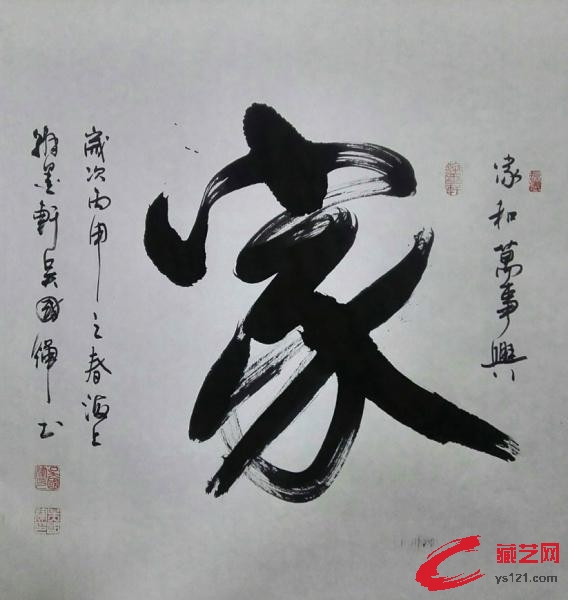 家和萬事興
家
歲次丙申之春海上
翰墨軒吳國錦書
藏艺网
ys121.com